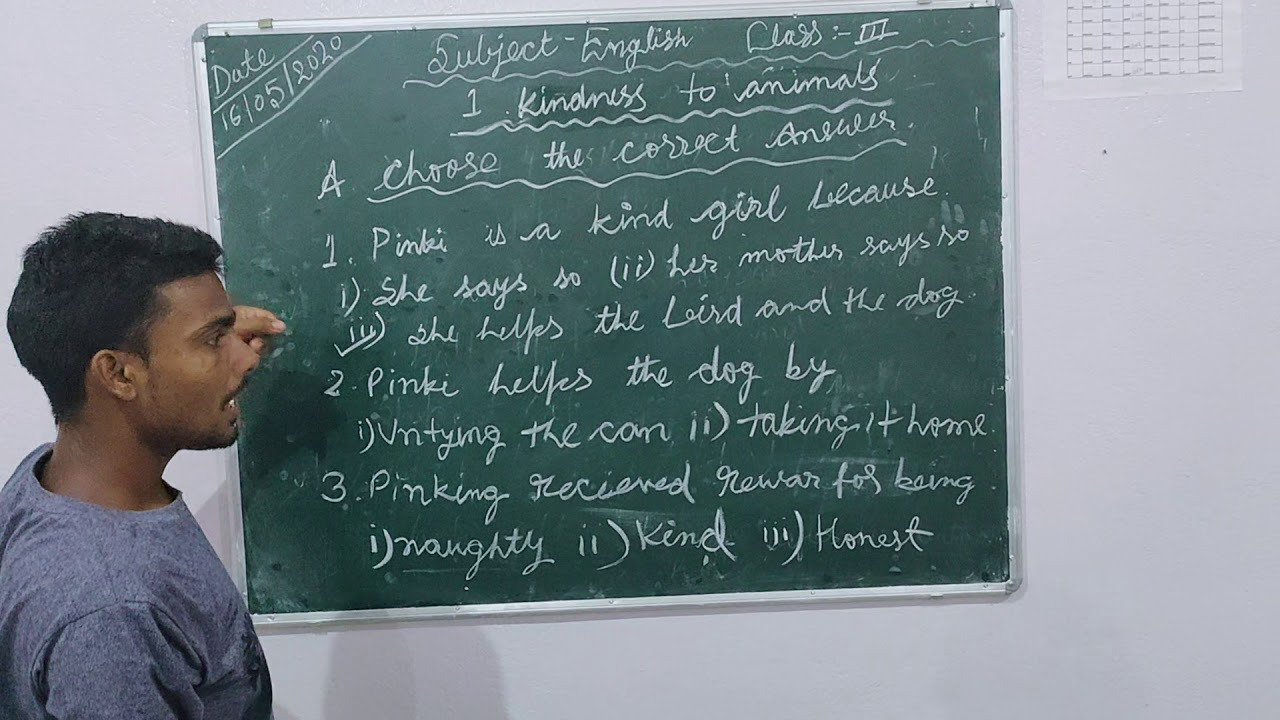 Date
16/05/2020
Subject-English Class:-III
1 Kindness to animals
A choose the correct Answer.
1. Pinki is a kind girl because.
i) She says so (ii) her mother says so
iii) She helps the bird and the dog.
2. Pinki helps the dog by
i) Untying the can ii) taking it home.
3. Pinking recieved rewar for being.
i) naughty ii) Kind iii) Honest